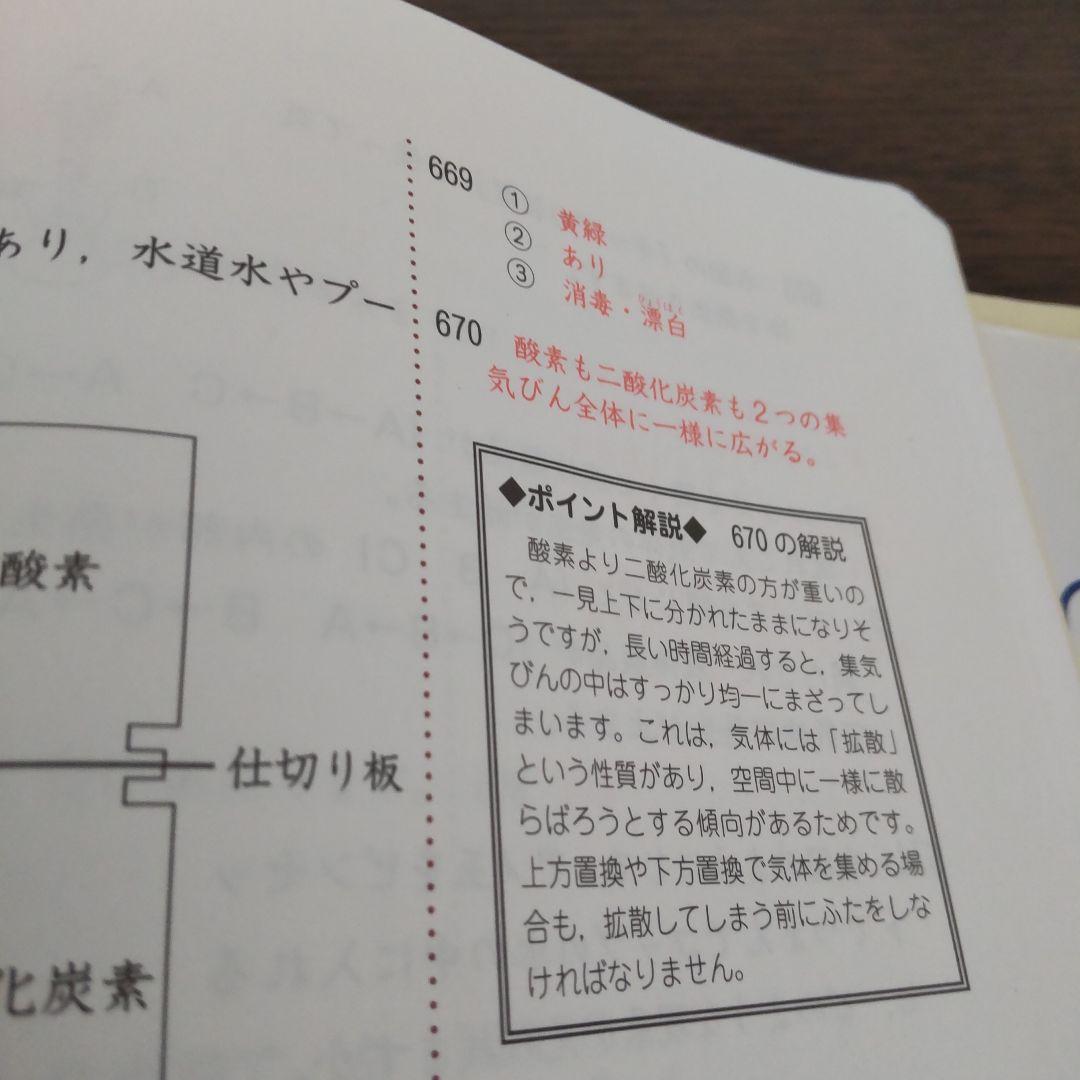 あり，水道水やプー
酸素
仕切り板
化炭素
669 ① 黄緑
② あり
③ 消毒・漂白
ひょうはく
670 酸素も二酸化炭素も2つの集
気びん全体に一様に広がる。
◆ポイント解説◆ 670の解説
酸素より二酸化炭素の方が重いの
で，一見上下に分かれたままになりそ
うですが，長い時間経過すると，集気
びんの中はすっかり均一にまざってし
まいます。これは，気体には「拡散」
という性質があり，空間中に一様に散
らばろうとする傾向があるためです。
上方置換や下方置換で気体を集める場
合も，拡散してしまう前にふたをしな
ければなりません。